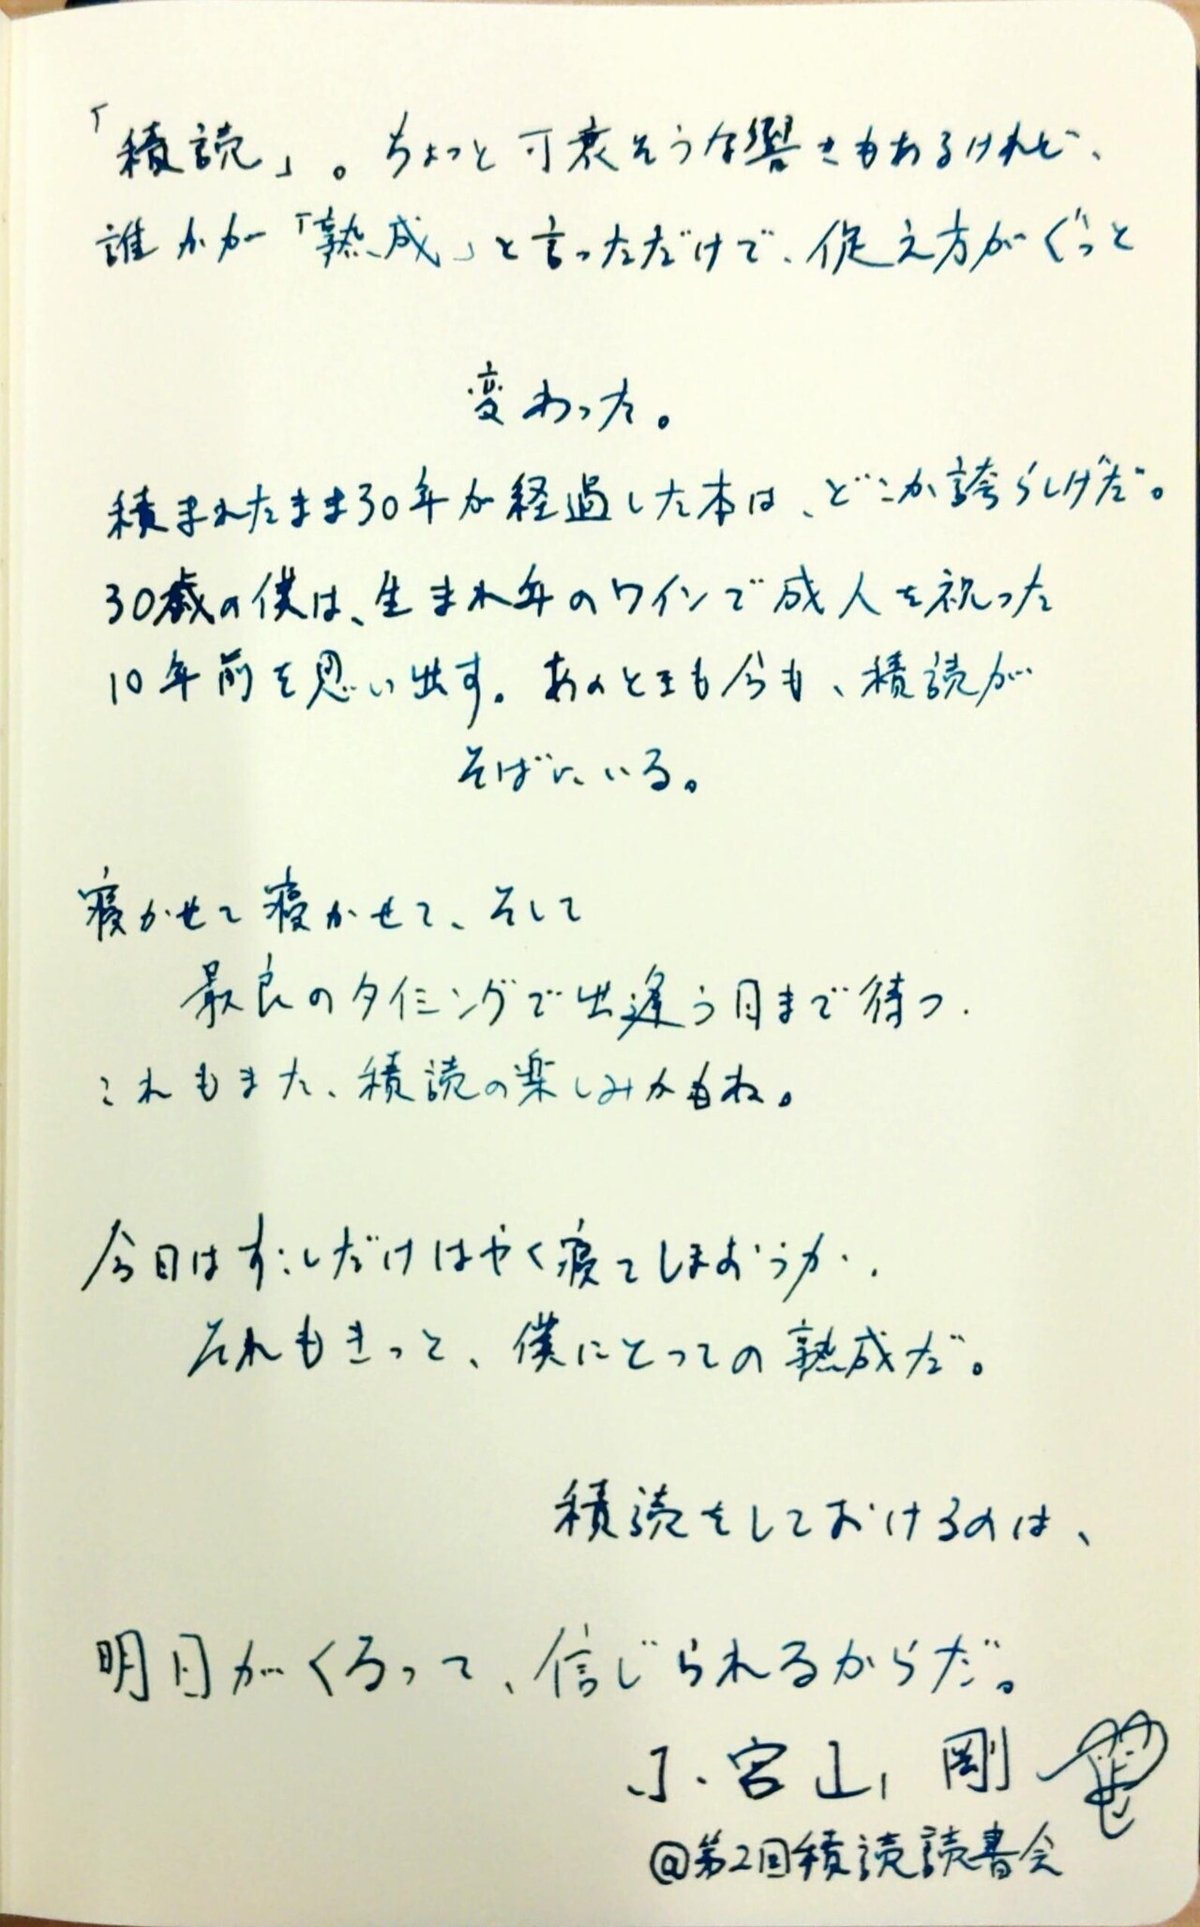 「積読」。ちょっと可哀そうな響きもあるけれど、
誰かが「熟成」と言っただけで、促え方がぐっと
変わった。
積まれたまま30年が経過した本は、どこか誇らしげだ。
30歳の僕は、生まれ年のワインで成人を祝った
10年前を思い出す。あのときも今も、積読が
そばにいる。
寝かせて寝かせて、そして
最良のタイミングで出逢う日まで待つ.
これもまた、積読の楽しみかもね。
今日はすこしだけはやく寝てしまおうか.
それもきっと、僕にとっての熟成だ。
積読をしておけるのは、
明日がくるって、信じられるからだ。
小宮山 剛
@第2回積読読書会